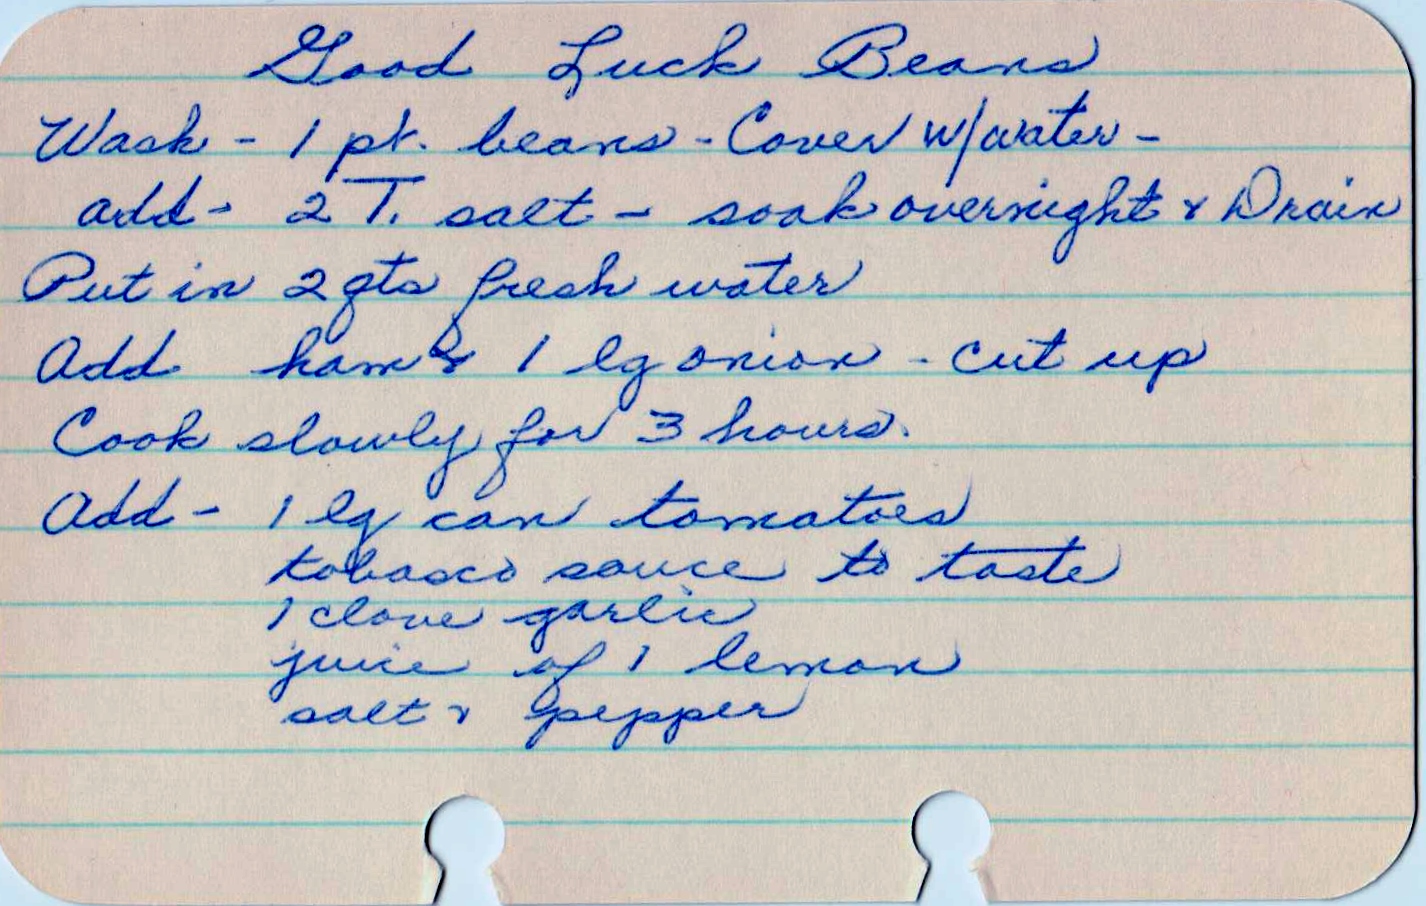 Good Luck Beans
Wash - 1 pt. beans - Cover w/water -
add - 2 T. salt - soak overnight & Drain
Put in 2 qts fresh water
Add ham & 1 lg onion - cut up
Cook slowly for 3 hours.
Add - 1 lg can tomatoes
tobasco sauce to taste
1 clove garlic
juice of 1 lemon
salt & pepper